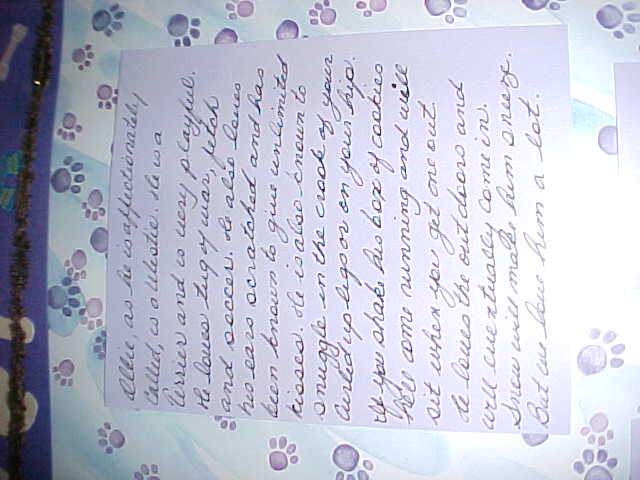 Ollie, as he is affectionately
called, is a Westie. He is a
terrier and is very playful.
He loves tug of war, fetch
and soccer. He also loves
his ears scratched and has
been known to give unlimited
kisses. He is also known to
snuggle in the crook of your
curled up legs or on your hip.
If you shake his box of cookies
he'll come running and will
sit when you get one out.
He loves the outdoors and
will eventually come in.
Snow will make him sneeze.
But we love him a lot.